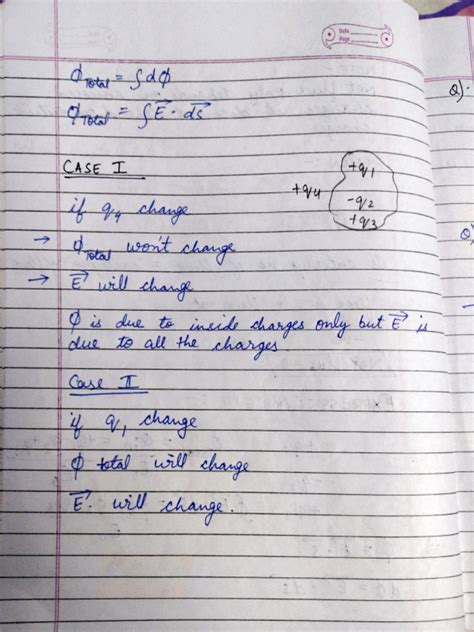 Date
Page
ϕ Total = ∫ dϕ
ϕ Total = ∫ E⃗ · ds⃗
Q).
CASE I
+q1
+q4
-q2
+q3
if q4 change
→ ϕ Total won't change
→ E⃗ will change
ϕ is due to inside charges only but E⃗ is
due to all the charges.
Case II
if q1 change
ϕ total will change
E⃗. will change.